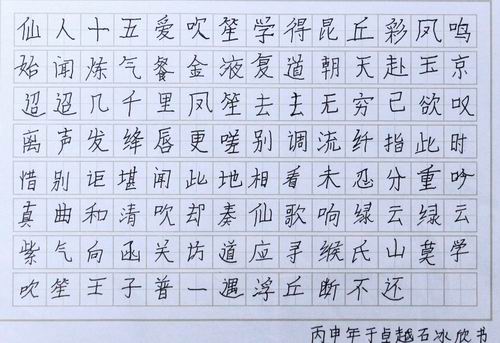 仙人十五爱吹笙学得昆丘彩凤鸣
始闻炼气餐金液复道朝天赴玉京
迢迢几千里凤笙去去无穷已欲叹
离声发绛唇更嗟别调流纤指此时
惜别讵堪闻此地相看未忍分重吟
真曲和清吹却奏仙歌响绿云绿云
紫气向函关访道应寻缑氏山莫学
吹笙王子普一遇浮丘断不还
丙申年于卓越石冰欣书